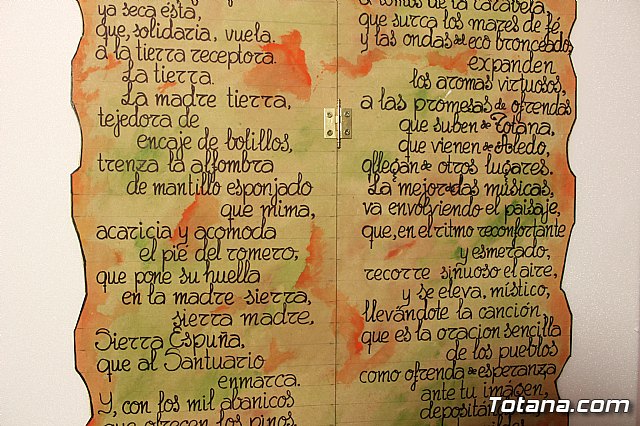 ya seca ésta,
que, solidaria, vuela.
a la tierra receptora.
La tierra.
La madre tierra,
tejedora de
encaje de bolillos,
trenza la alfombra
de mantillo esponjado
que mima,
acaricia y acomoda
el pie del romero,
que pone su huella
en la madre sierra,
sierra madre,
Sierra Espuña,
que al Santuario
enmarca.
Y, con los mil abanicos
que ofrecen los pinos
a lomos de la carabela
que surca los mares de fé,
y las ondas del eco bronceado
expanden
los aromas virtuosos,
a las promesas de ofrendas
que suben de Totana,
que vienen de Aledo,
allegan de otros lugares.
La mejor de las músicas,
va envolviendo el paisaje,
que, en el ritmo reconfortante
y esmerado,
recorre siñuoso el aire,
y se eleva, místico,
llevándote la canción,
que es la oración sencilla
de los pueblos
como ofrenda de esperanza
ante tu imágen,
Totana.com